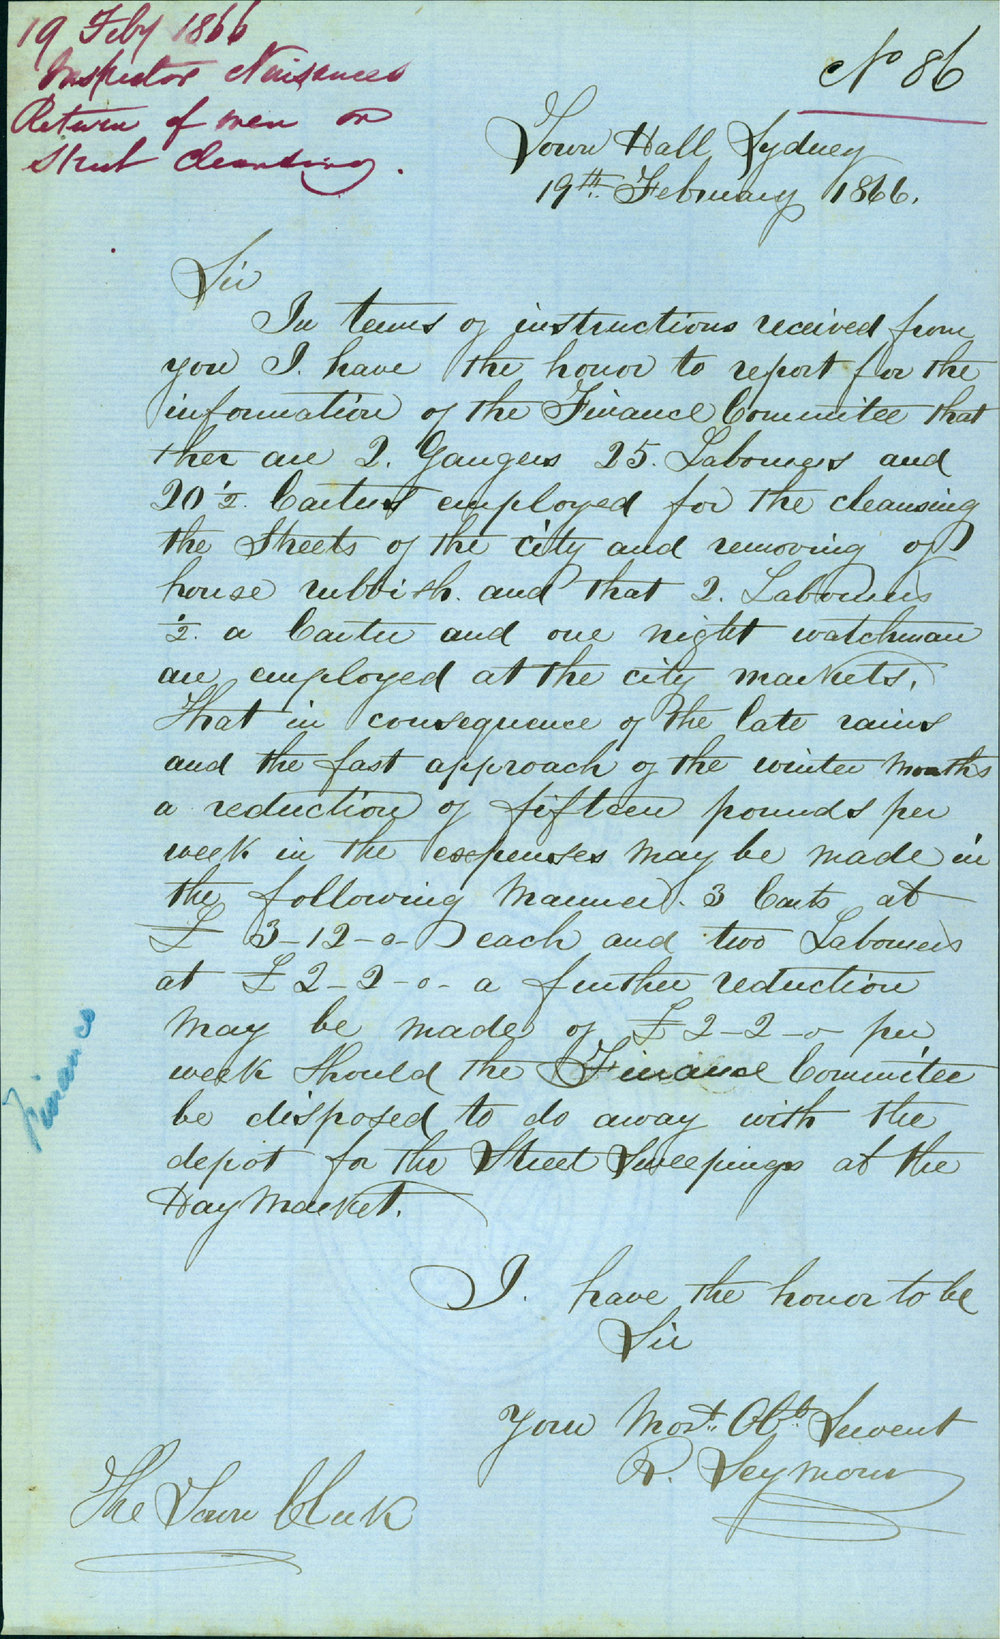 19 Feby 1866
Inspector Nuisances
Return of men on
Street Cleansing.
No 86
Town Hall Sydney
19th February 1866.
Sir
In terms of instructions received from
you I. have the honor to report for the
information of the Finance Committee that
ther are 2. Gaugers 25. Labourers and
20 ½. Carters employed for the cleansing
the Streets of the city and removing of
house rubbish. and that 2. Labourers
½. a Carter and one night watchman
are employed at the city markets.
That in consequence of the late rains
and the fast approach of the winter months
a reduction of fifteen pounds per
week in the expenses may be made in
the following manner. 3 Carts at
£ 3-12-0- each and two Labourers
at £ 2-2-0- a further reduction
may be made of £ 2-2-0- per
week should the Finance Committee
be disposed to do away with the
depot for the Street Sweepings at the
Hay Market.
Finance
I. have the honor to be
Sir
Your Most. Obt. Servent
R. Seymour
The Town Clerk